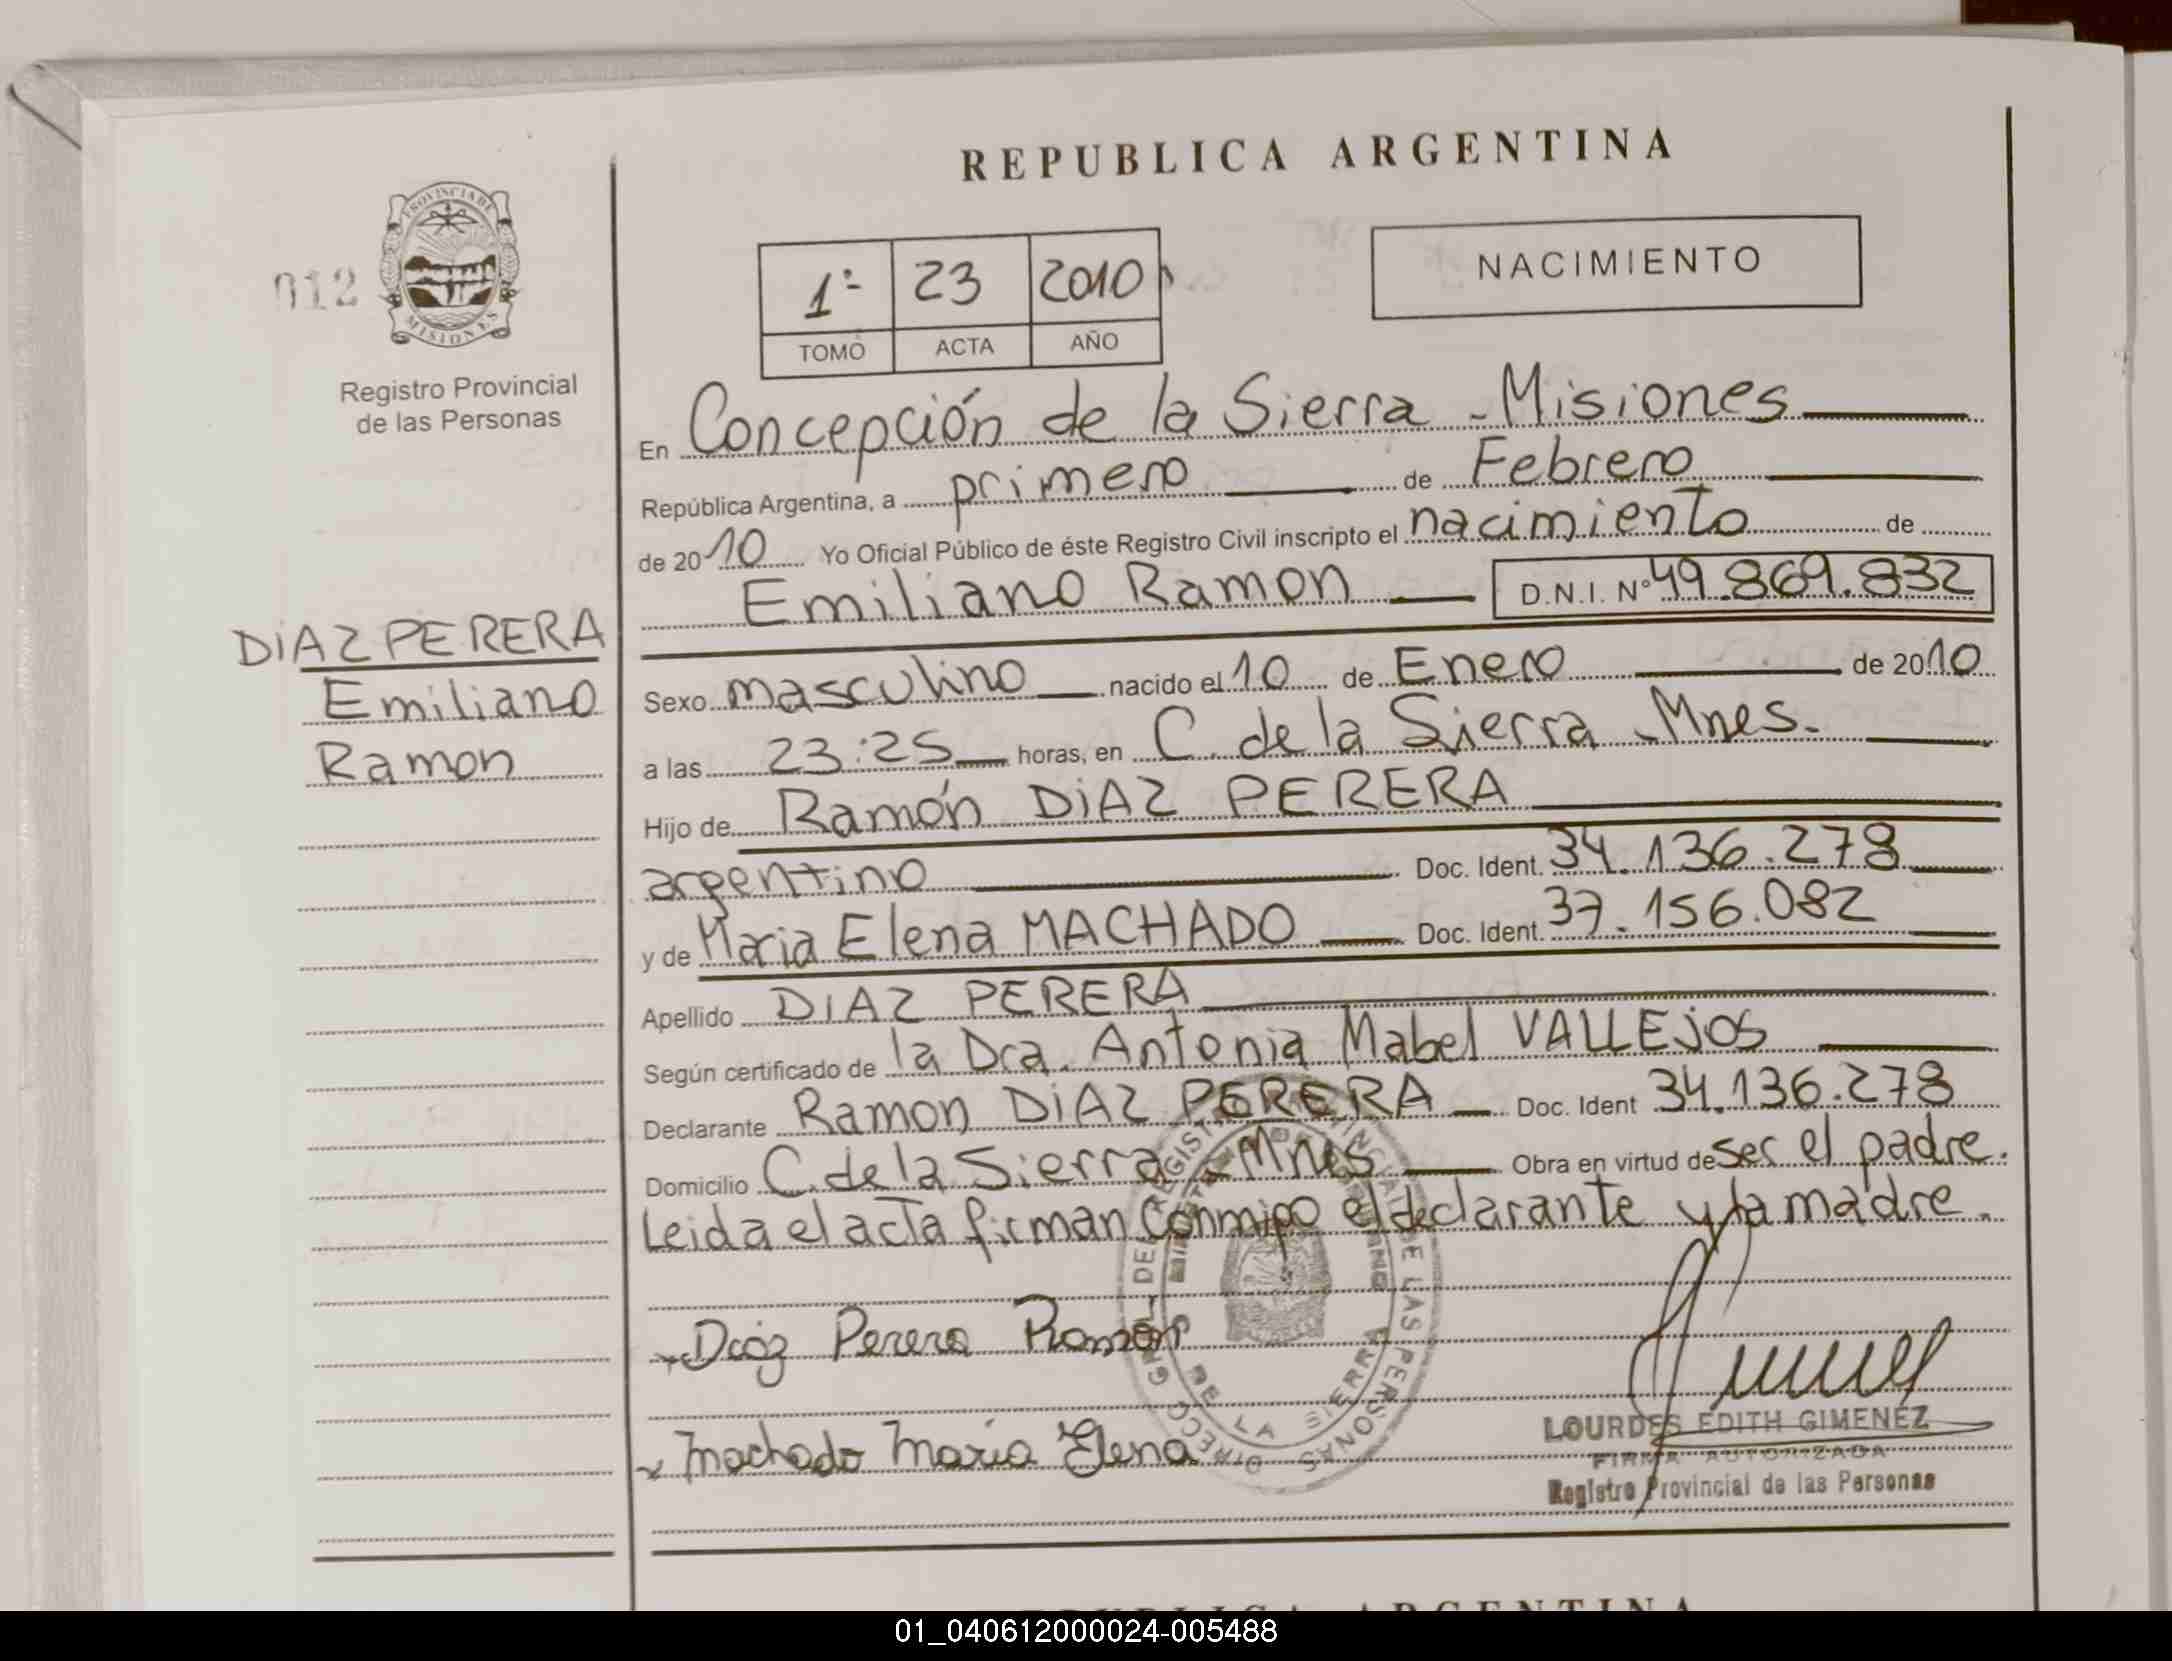 REPUBLICA ARGENTINA
PROVINCIA DE
MISIONES
012
Registro Provincial
de las Personas
1º 23 2010
TOMO ACTA AÑO
NACIMIENTO
En Concepción de la Sierra - Misiones
República Argentina, a primero de Febrero
de 2010 Yo Oficial Público de éste Registro Civil inscripto el nacimiento de
Emiliano Ramon D.N.I. Nº 49.869.832
DIAZ PERERA
Emiliano
Ramon
Sexo masculino nacido el 10 de Enero de 2010
a las 23:25 horas, en C. de la Sierra - Mnes.
Hijo de Ramón DIAZ PERERA
argentino Doc. Ident. 34.136.278
y de Maria Elena MACHADO Doc. Ident. 37.156.082
Apellido DIAZ PERERA
Según certificado de la Dra. Antonia Mabel VALLEJOS
Declarante Ramon DIAZ PERERA Doc. Ident 34.136.278
Domicilio C. de la Sierra - Mnes Obra en virtud de ser el padre.
Leida el acta firman conmigo el declarante y la madre.
Diaz Perera Ramon
Machado Maria Elena
LOURDES EDITH GIMENEZ
FIRMA AUTORIZADA
Registro Provincial de las Personas
DE LA SIERRA
REPUBLICA ARGENTINA
01_040612000024-005488